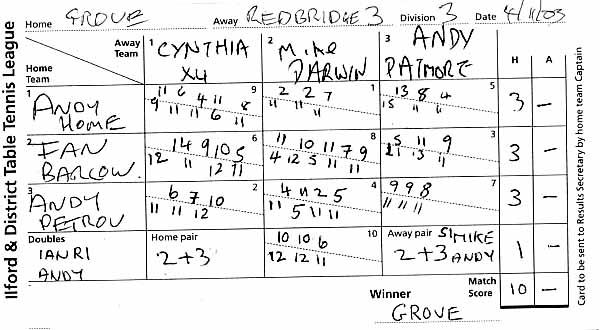 Ilford & District Table Tennis League
Home GROVE Away REDBRIDGE 3 Division 3 Date 4/11/03
Away Team 1 CYNTHIA XU 2 Mike DARWIN 3 ANDY PATMORE H A
Home Team
1 ANDY HOME 9 11 6 4 11 8 9 11 11 6 11 1 2 2 7 11 11 11 5 13 8 4 15 11 11 3 —
2 IAN BARLOW 6 14 9 10 5 12 11 12 11 8 11 10 11 7 9 4 12 5 11 11 3 11 9 3 —
3 ANDY PETROU 2 6 7 10 11 11 12 4 4 11 2 5 11 5 11 11 7 9 9 8 11 11 11 3 —
Doubles Home pair 10 10 10 6 Away pair MIKE
IAN ANDY 2+3 12 12 11 2+3 ANDY 1 —
Winner GROVE Match Score 10 —
Card to be sent to Results Secretary by home team Captain